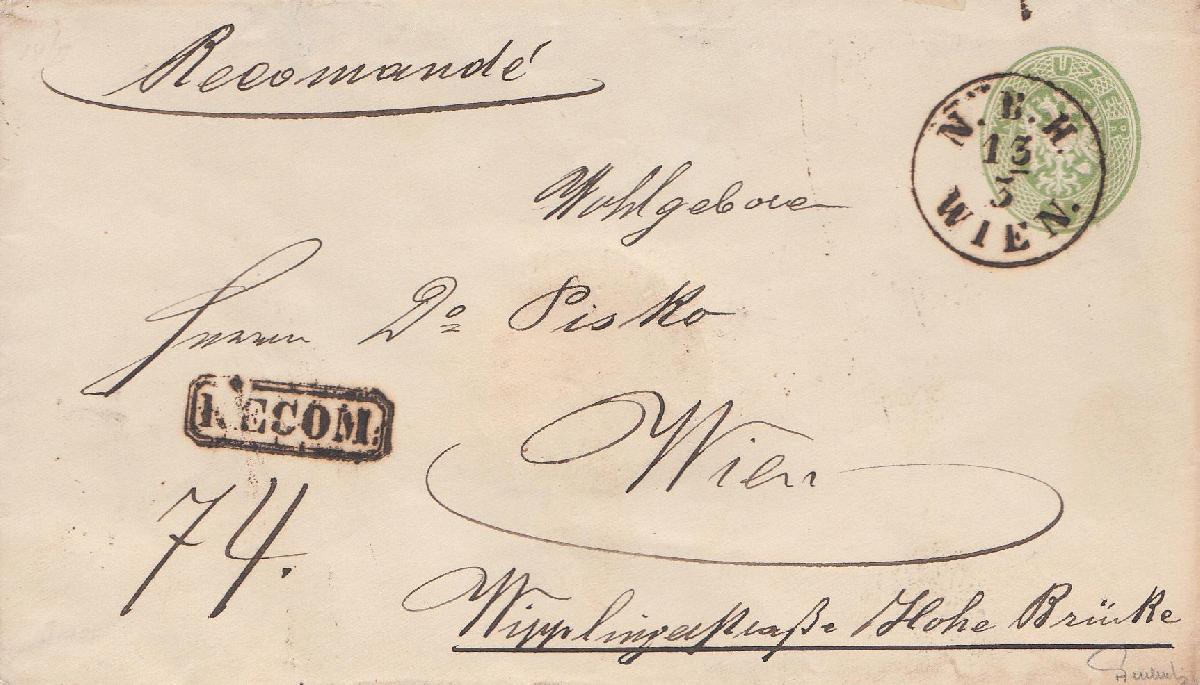 Recomandé
KREUZER
N.B.H.
13
5
WIEN.
Wohlgeboren
Herrn Dº Pisko
RECOM.
Wien
74.
Wipplingerstraße Hohe Brücke